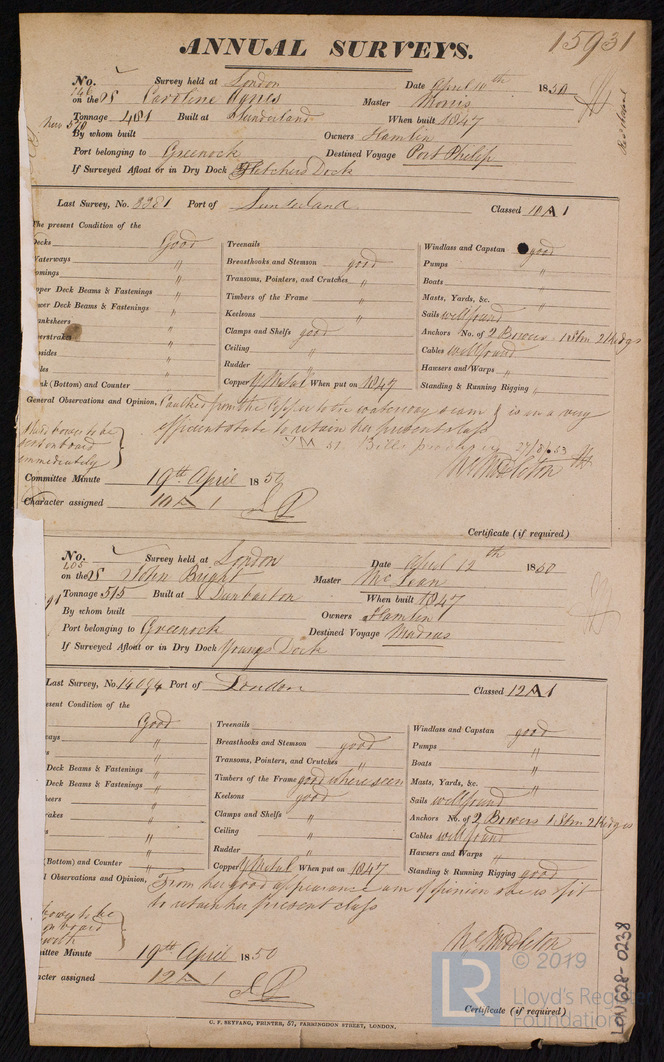 ANNUAL SURVEYS.
15931
No. 146 Survey held at London Date April 10th 1850
on the S Caroline Agnes Master Morris
Tonnage 481 Built at Sunderland When built 1847
New 570
By whom built Owners Hamlin
Port belonging to Greenock Destined Voyage Port Philip
If Surveyed Afloat or in Dry Dock Fletchers Dock
Last Survey, No. 3381 Port of Sunderland Classed 10 A 1
The present Condition of the
Decks Good Treenails Windlass and Capstan good
Waterways " Breasthooks and Stemson good Pumps "
Comings " Transoms, Pointers, and Crutches " Boats "
Upper Deck Beams & Fastenings " Timbers of the Frame " Masts, Yards, &c. "
Lower Deck Beams & Fastenings " Keelsons " Sails well found
Planksheers " Clamps and Shelfs good Anchors No. of 2 Bowers 1 Stm 2 Kedgs
" Ceiling " Cables well found
Topsides " Rudder " Hawsers and Warps "
Plank (Bottom) and Counter " Copper Y Metal When put on 1847 Standing & Running Rigging "
General Observations and Opinion, Caulked from the Copper to the waterway seam & is in a very
efficient state to retain her present class
to be
sent on board
immediately
27/8/53
Wm Middleton
Committee Minute 19th April 1850
Character assigned 10 A 1
Certificate (if required)
No. 205 Survey held at London Date April 12th 1850
on the S John Bright Master McLean
Tonnage 515 Built at Dunbarton When built 1847
By whom built Owners Hamlin
Port belonging to Greenock Destined Voyage Madras
If Surveyed Afloat or in Dry Dock Youngs Dock
Last Survey, No. 14094 Port of London Classed 12 A 1
present Condition of the
Good Treenails Windlass and Capstan good
ways " Breasthooks and Stemson good Pumps "
s " Transoms, Pointers, and Crutches " Boats "
Deck Beams & Fastenings " Timbers of the Frame good where seen Masts, Yards, &c. "
Deck Beams & Fastenings " Keelsons good Sails well found
heers " Clamps and Shelfs " Anchors No. of 2 Bowers 1 Stm 2 Kedges
rakes " Ceiling " Cables well found
" Rudder " Hawsers and Warps "
(Bottom) and Counter " Copper Y Metal When put on 1847 Standing & Running Rigging good
l Observations and Opinion, From her good appearance am of opinion she is fit
to retain her present class
to be
on board
Wm Middleton
mittee Minute 19th April 1850
racter assigned 12 A 1
Certificate (if required)
C. F. SEYFANG, PRINTER, 57, FARRINGDON STREET, LONDON.
LON628-0238
LR © 2019
Lloyd's Register
Foundation